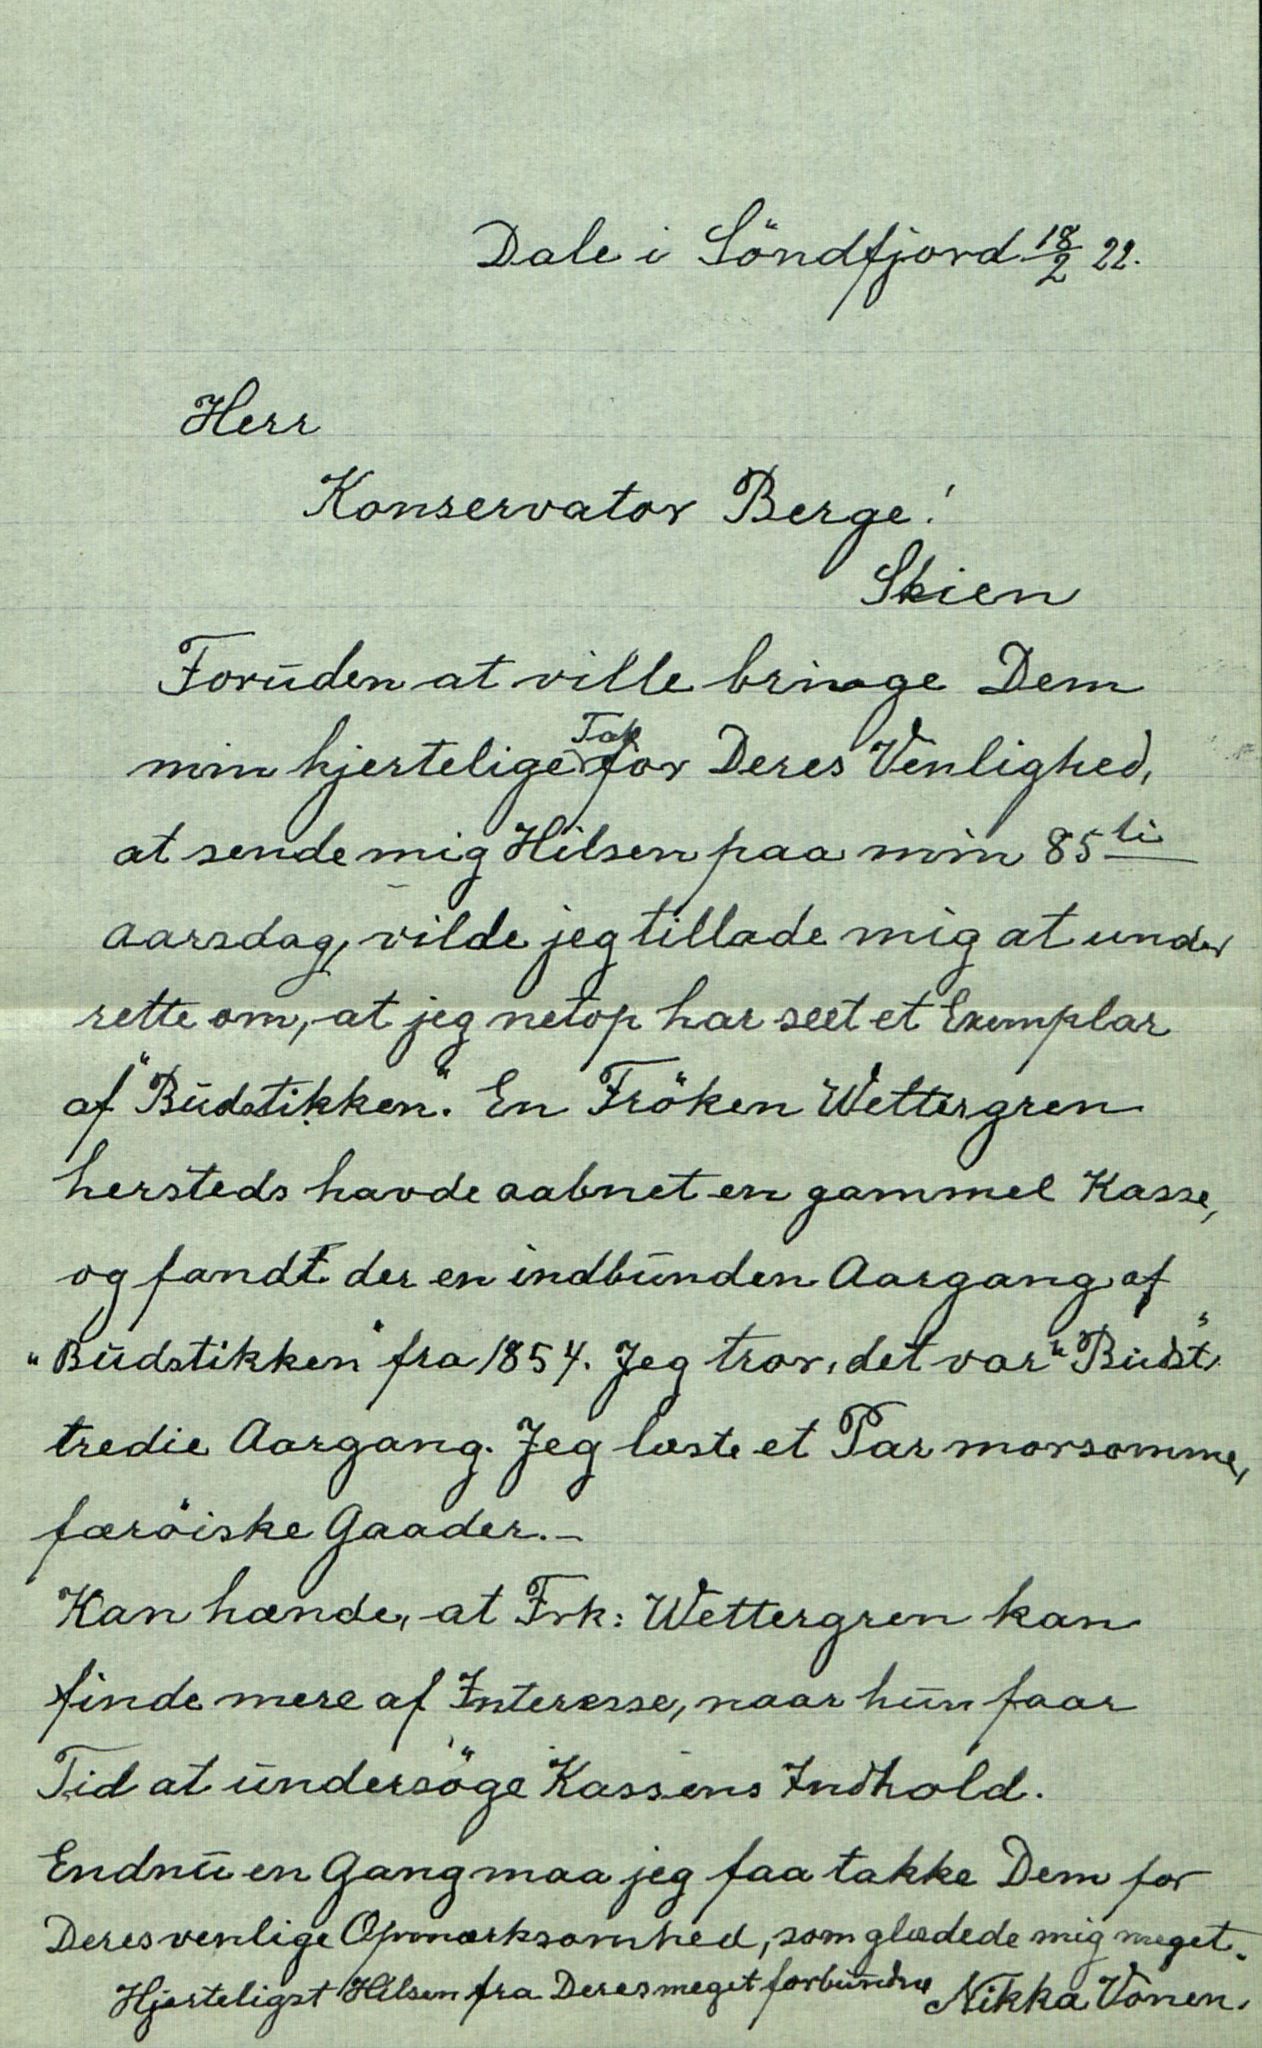 Dale i Söndfjord 18/2 22.
Herr
Konservator Berge!
Skien
Foruden at ville bringe Dem
min hjertelige Tak for Deres Venlighed,
at sende mig Hilsen paa min 85ti
aarsdag, vilde jeg tillade mig at under
rette om, at jeg netop har seet et Exemplar
af "Budstikken". En Fröken Wettergren
hersteds havde aabnet en gammel Kasse,
og fandt der en indbunden Aargang af
"Budstikken" fra 1854. Jeg tror, det var "Budst."
tredie Aargang. Jeg læste et Par morsomme,
færöiske Gaader. —
Kan hænde, at Frk: Wettergren kan
finde mere af Interesse, naar hun faar
Tid at undersöge Kassens Indhold.
Endnu en Gang maa jeg faa takke Dem for
Deres venlige Opmærksomhed, som glædede mig meget.
Hjerteligst Hilsen fra Deres meget forbundne Nikka Vonen.